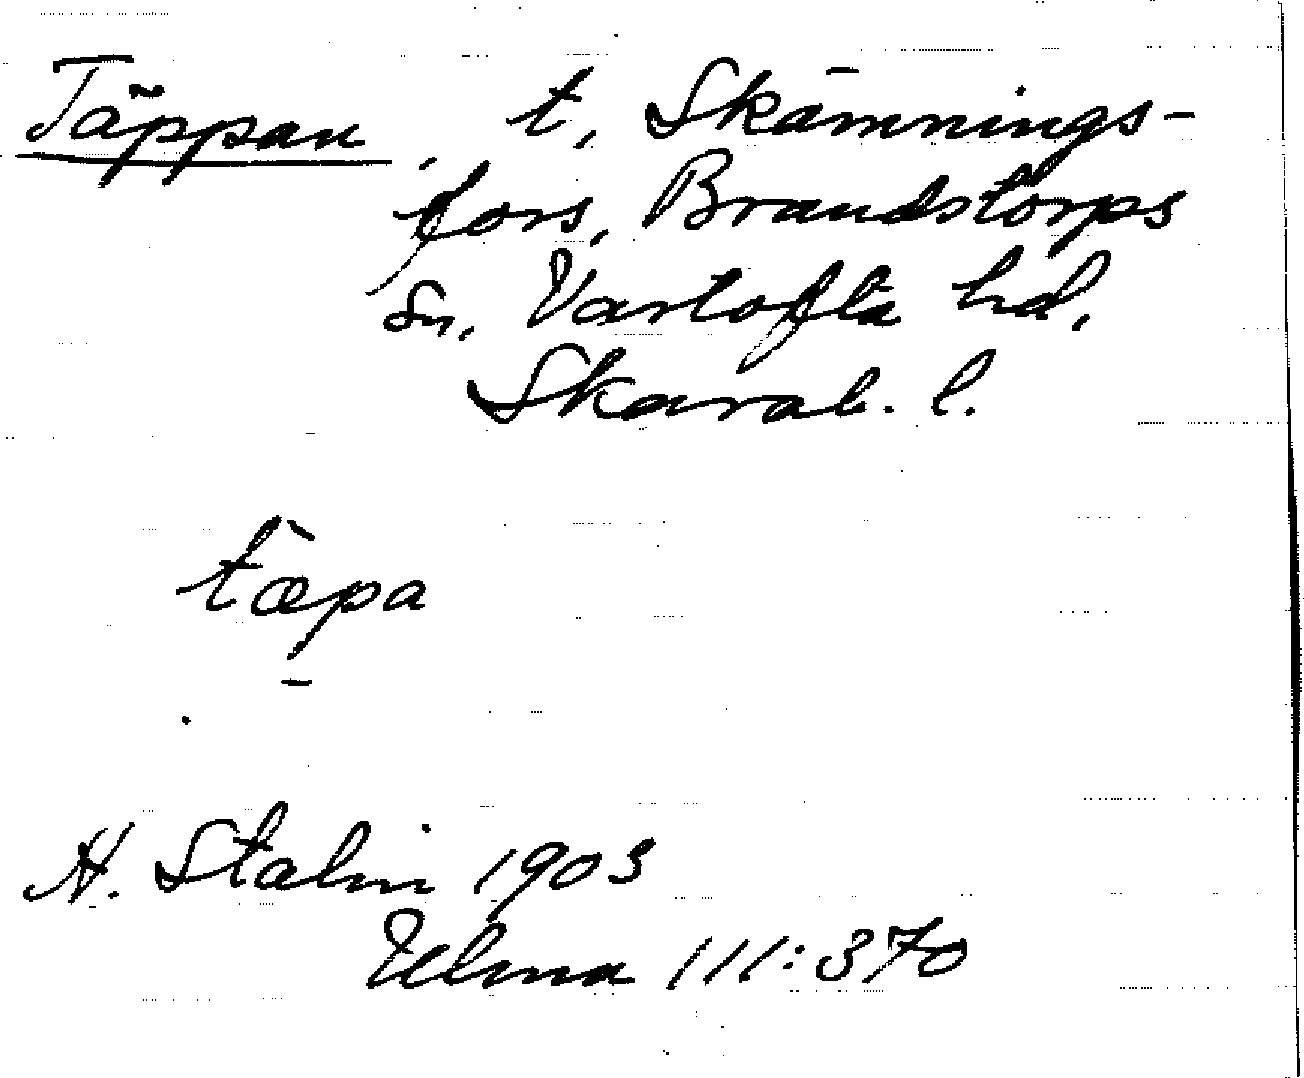 Täppan, t. Skämnings-
fors, Brandstorps
sn, Vartofta hd,
Skarab. l.
tæ̀pa
H. Stalin 1903
Ulma 111:370